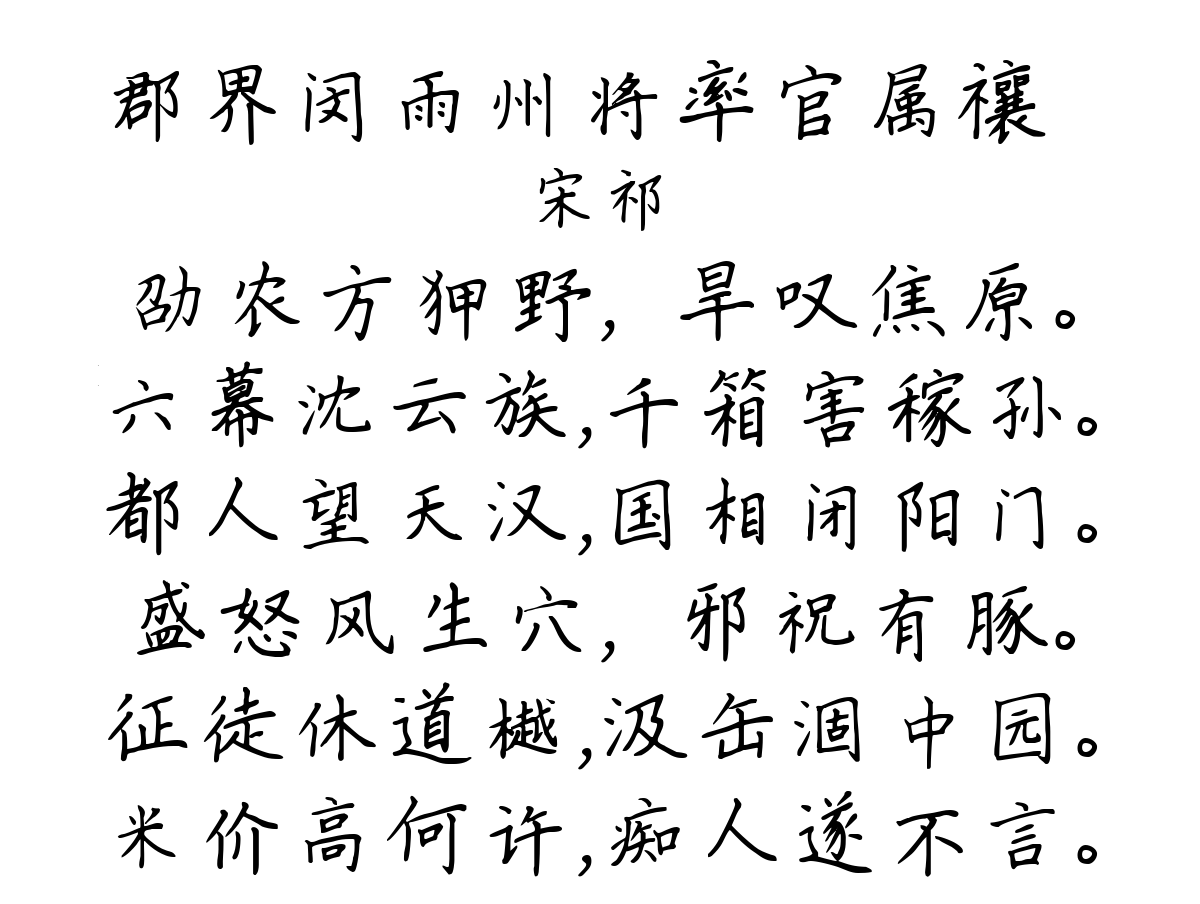 郡界闵雨州将率官属禳
宋祁
劭农方狎野，旱叹焦原。
六幕沈云族，千箱害稼孙。
都人望天汉，国相闭阳门。
盛怒风生穴，邪祝有豚。
征徒休道樾，汲缶涸中园。
米价高何许，痴人遂不言。